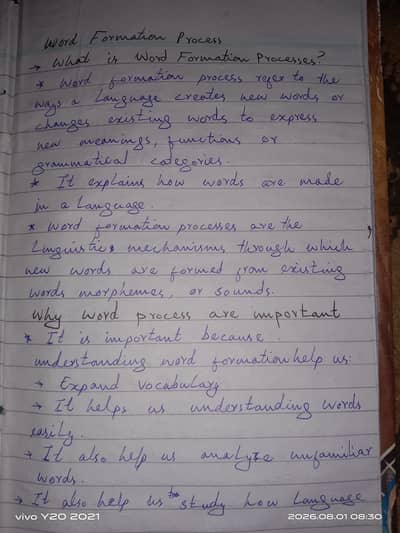 Word Formation Process
→ What is Word Formation Processes?
* Word formation process refer to the
ways a language creates new words or
changes existing words to express
new meanings, functions or
grammatical categories.
* It explains how words are made
in a language.
* Word formation processes are the
Linguistics mechanisms through which
new words are formed from existing
words morphemes, or sounds.
Why word process are important
* It is important because
understanding word formation help us:
→ Expand vocabulary
→ It helps us understanding words
easily.
→ It also help us analyze unfamiliar
words.
→ It also help us to study how language
vivo Y20 2021
2026.08.01 08:30